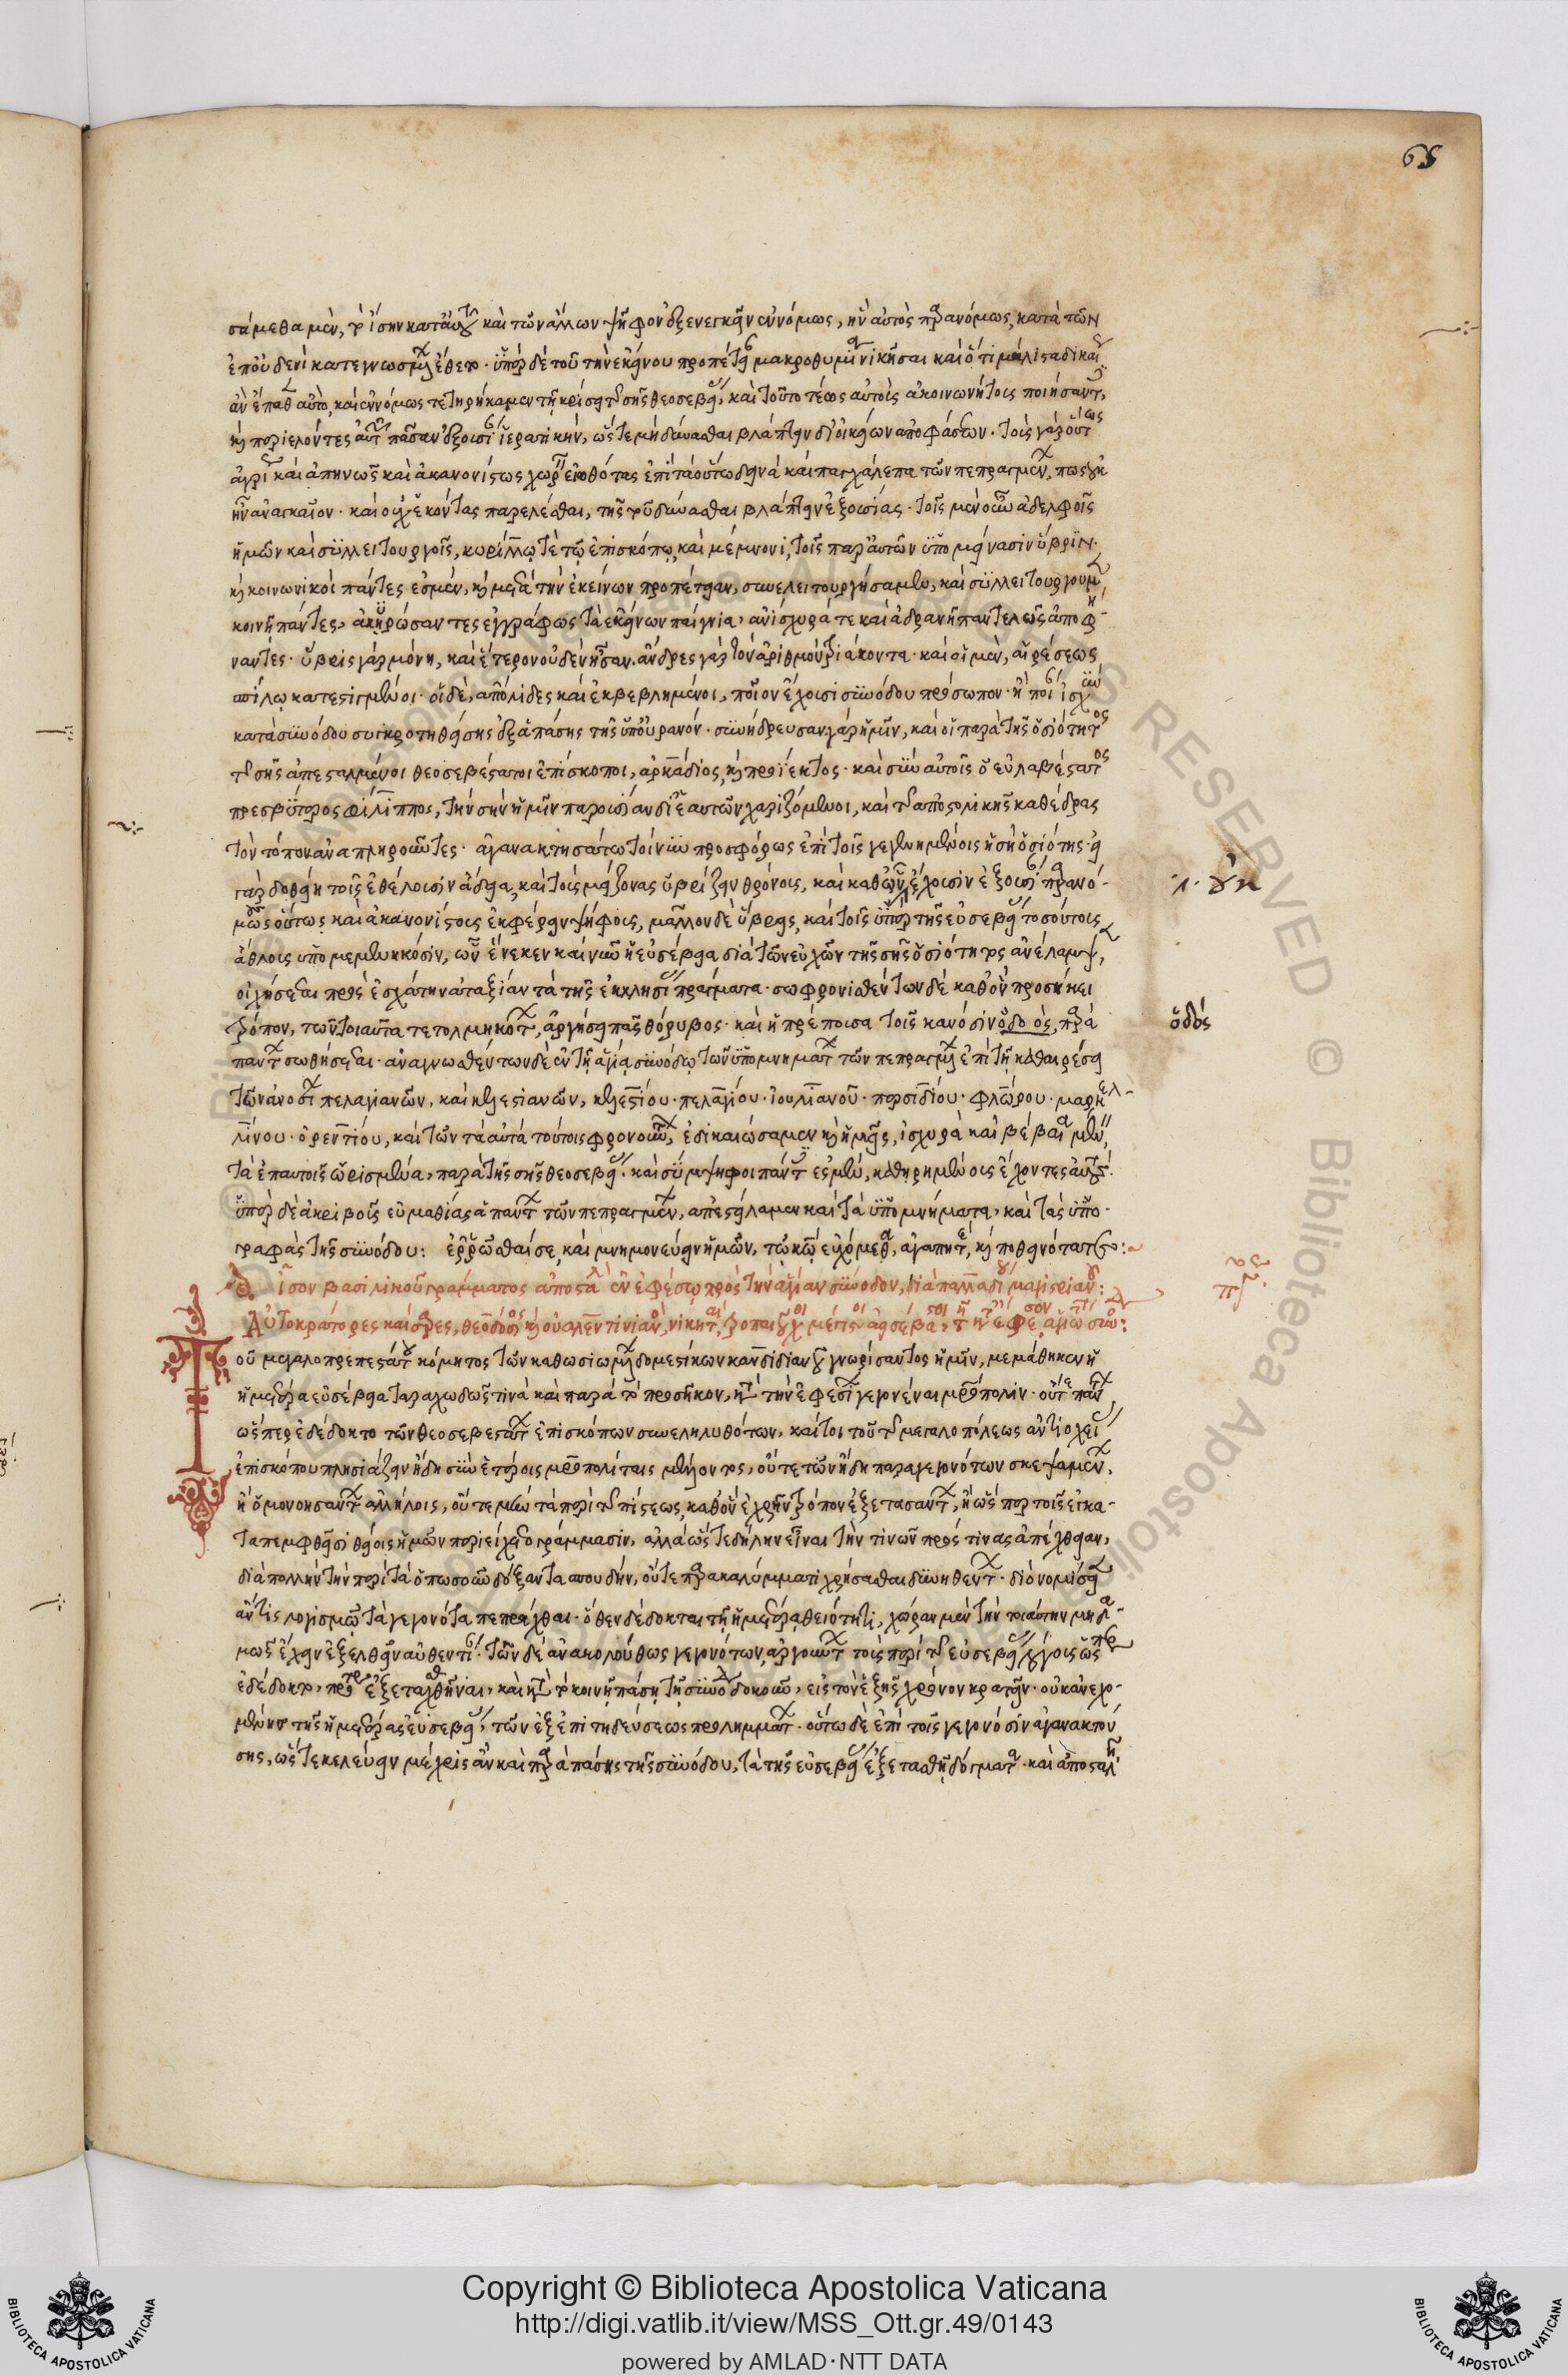 65
σάμεθα μὲν, τὸ ἴσην κατ' αὐτοῦ καὶ τῶν ἄλλων ψῆφον ἐξενεγκεῖν ἐννόμως, ἣν αὐτὸς παρανόμως, κατὰ τῶν
ἐπ' οὐδενὶ κατεγνωσμένων ἔθετο· ὑπὲρ δὲ τοῦ τὴν ἐκείνου προπέτειαν μακροθυμίᾳ νικῆσαι καὶ ὅτι μάλιστα δικαίως
ἂν ἔπαθεν αὐτὸ, καὶ ἐννόμως τετηρήκαμεν τῇ κρίσει τῆς σῆς θεοσεβείας, καὶ τοῦτο τέως αὐτοὺς ἀκοινωνήτους ποιήσαντες,
καὶ περιελόντες αὐτῶν πᾶσαν ἐξουσίαν ἱερατικὴν, ὥστε μὴ δύνασθαι βλάπτειν δι' οἰκείων ἀποφάσεων. τοὺς γὰρ οὕτως
ἀγρίως καὶ ἀπηνῶς καὶ ἀκανονίστως χωρεῖν εἰωθότας ἐπὶ τὰ οὕτω δεινὰ καὶ παγχάλεπα τῶν πεπραγμένων, πῶς οὐκ
ἦν ἀναγκαῖον· καὶ οὐχ ἑκόντας παρελέσθαι, τῆς τοῦ δύνασθαι βλάπτειν ἐξουσίας· τοῖς μὲν οὖν ἀδελφοῖς
ἡμῶν καὶ συλλειτουργοῖς, κυρίλλῳ τὲ τῷ ἐπισκόπῳ, καὶ μέμνονι, τοῖς παρ' αὐτῶν ὑπομείνασιν ὕβριν·
καὶ κοινωνικοὶ πάντες ἐσμὲν, καὶ μετὰ τὴν ἐκείνων προπέτειαν, συνελειτουργήσαμεν, καὶ συλλειτουργοῦμεν
κοινῇ πάντες, ἀκυρώσαντες ἐγγράφως τὰ ἐκείνων παίγνια, ἀνίσχυρά τε καὶ ἀδρανῆ παντελῶς ἀποφή-
ναντες· ὕβρις γὰρ μόνη, καὶ ἕτερον οὐδὲν ἦσαν. ἄνδρες γὰρ τὸν ἀριθμὸν τριάκοντα· καὶ οἱ μὲν, αἱρέσεως
σπίλῳ κατεστιγμένοι· οἱ δὲ, ἀπόλιδες καὶ ἐκβεβλημένοι, ποῖον ἔχουσι συνόδου πρόσωπον· ἢ ποίαν ἰσχὺν
κατὰ συνόδου συγκροτηθείσης ἐξ ἁπάσης τῆς ὑπ' οὐρανόν· συνήδρευσαν γὰρ ἡμῖν, καὶ οἱ παρὰ τῆς ὁσιότητος
τῆς σῆς ἀπεσταλμένοι θεοσεβέστατοι ἐπίσκοποι, ἀρκάδιος, καὶ προΐεκτος· καὶ σὺν αὐτοῖς ὁ εὐλαβέστατος
πρεσβύτερος φίλιππος, τὴν σὴν ἡμῖν παρουσίαν δι' ἑαυτῶν χαριζόμενοι, καὶ τῆς ἀποστολικῆς καθέδρας
τὸν τόπον ἀναπληροῦντες· ἀγανακτησάτω τοίνυν προσφόρως ἐπὶ τοῖς γεγενημένοις ἡ σὴ ὁσιότης· εἰ
γὰρ δοθείη τοῖς ἐθέλουσιν ἄδεια, καὶ τοὺς μείζονας ὑβρίζειν θρόνους, καὶ καθ' ὧν ἔχουσιν ἐξουσίαν παρανό-
μως οὕτως καὶ ἀκανονίστους ἐκφέρειν ψήφους, μᾶλλον δὲ ὕβρεις, καὶ τοῖς ὑπὲρ τῆς εὐσεβείας τοσούτοις
ἄθλοις ὑπομεμενηκόσιν, ὧν ἕνεκεν καὶ νῦν ἡ εὐσέβεια διὰ τῶν εὐχῶν τῆς σῆς ὁσιότητος ἀνέλαμψεν,
οἰχήσεται πρὸς ἐσχάτην ἀταξίαν τὰ τῆς ἐκκλησίας πράγματα· σωφρονισθέντων δὲ καθ' ὃν προσήκει
τρόπον, τῶν τοιαῦτα τετολμηκότων, ἀργήσει πᾶς θόρυβος· καὶ ἡ πρέπουσα τοῖς κανόσιν ὁδοὸς, παρὰ
πάντων σωθήσεται· ἀναγνωσθέντων δὲ ἐν τῇ ἁγίᾳ συνόδῳ τῶν ὑπομνημάτων τῶν πεπραγμένων ἐπὶ τῇ καθαιρέσει
τῶν ἀνοσίων πελαγιανῶν, καὶ κελεστιανῶν, κελεστίου· πελαγίου· ἰουλιανοῦ· περσιδίου· φλώρου· μαρκελ-
λίνου· ὀρεντίου, καὶ τῶν τὰ αὐτὰ τούτοις φρονούντων, ἐδικαιώσαμεν καὶ ἡμεῖς, ἰσχυρὰ καὶ βέβαια μένειν,
τὰ ἐπ' αὐτοῖς ὡρισμένα, παρὰ τῆς σῆς θεοσεβείας· καὶ σύμψηφοι πάντες ἐσμὲν, καθῃρημένους ἔχοντες αὐτούς.
ὑπὲρ δὲ ἀκριβοῦς εὐμαθίας ἁπάντων τῶν πεπραγμένων, ἀπεστείλαμεν καὶ τὰ ὑπομνήματα, καὶ τὰς ὑπο-
γραφὰς τῆς συνόδου: ἐρρῶσθαί σε, καὶ μνημονεύειν ἡμῶν, τῷ κυρίῳ εὐχόμεθα, ἀγαπητὲ, καὶ ποθεινότατε:
ἴσον βασιλικοῦ γράμματος ἀποσταλὲν ἐν ἐφέσῳ πρὸς τὴν ἁγίαν σύνοδον, διὰ παλλαδίου μαγιστριανοῦ:
Αὐτοκράτορες καίσαρες, θεοδόσιος καὶ οὐαλεντινιανὸς, νικηταὶ, τροπαιοῦχοι μέγιστοι ἀεισέβαστοι, τῇ κατὰ ἔφεσον ἁγιωτάτῃ συνόδῳ:
Τοῦ μεγαλοπρεπεστάτου κόμητος τῶν καθωσιωμένων δομεστίκων κανδιδιανοῦ γνωρίσαντος ἡμῖν, μεμάθηκεν ἡ
ἡμετέρα εὐσέβεια ταραχωδῶς τινὰ καὶ παρὰ τὸ προσῆκον, κατὰ τὴν ἐφεσίων γεγονέναι μητρόπολιν· οὔτε πάντων,
ὥσπερ ἐδέδοκτο τῶν θεοσεβεστάτων ἐπισκόπων συνεληλυθότων, καίτοι τοῦ τῆς μεγαλοπόλεως ἀντιοχείας
ἐπισκόπου πλησιάζειν ἤδη σὺν ἑτέροις μητροπολίταις μέλλοντος, οὔτε τῶν ἤδη παραγεγονότων σκεψαμένων,
ἢ ὁμονοησάντων ἀλλήλοις, οὔτε μὲν τὰ περὶ τῆς πίστεως, καθ' ὃν ἐχρῆν τρόπον ἐξετασάντων, ἢ ὥσπερ τοῖς ἔγκα-
τα πεμφθεῖσι θείοις ἡμῶν περιείχετο γράμμασιν, ἀλλὰ ὥστε δήλην εἶναι τὴν τινῶν πρός τινας ἀπέχθειαν,
διὰ πολλὴν τὴν περὶ τὰ ὁπωσοῦν δόξαντα σπουδὴν, οὔτε παρακαλύμματι χρήσασθαι δυνηθέντων· δι' ὃ νομίσειεν
ἄν τις λογισμῷ τὰ γεγονότα πεπρᾶχθαι· ὅθεν δέδοκται τῇ ἡμετέρᾳ θειότητι, χώραν μὲν τὴν τοιαύτην μηδα-
μῶς ἔχειν ἐξελθεῖν αὐθεντίαν· τῶν δὲ ἀνακολούθως γεγονότων, ἀργούντων τοὺς περὶ τῆς εὐσεβείας λόγους ὥσπερ
ἐδέδοκτο, πρότερον ἐξετασθῆναι, καὶ κατὰ τὸ κοινῇ πάσῃ τῇ συνόδῳ δοκοῦν, εἰς τὸν ἑξῆς χρόνον κρατεῖν· οὐκ ἀνεχο-
μένης τῆς ἡμετέρας εὐσεβείας, τῶν ἐξ ἐπιτηδεύσεως προλημμάτων· οὕτω δὲ ἐπὶ τοῖς γεγονόσιν ἀγανακτού-
σης, ὥστε κελεύειν μέχρις ἂν καὶ παρὰ πάσης τῆς συνόδου, τὰ τῆς εὐσεβείας ἐξετασθῇ δόγματα· καὶ ἀποσταλῇ
λ. οὐκ
ὁδός
Copyright © Biblioteca Apostolica Vaticana
http://digi.vatlib.it/view/MSS_Ott.gr.49/0143
powered by AMLAD·NTT DATA